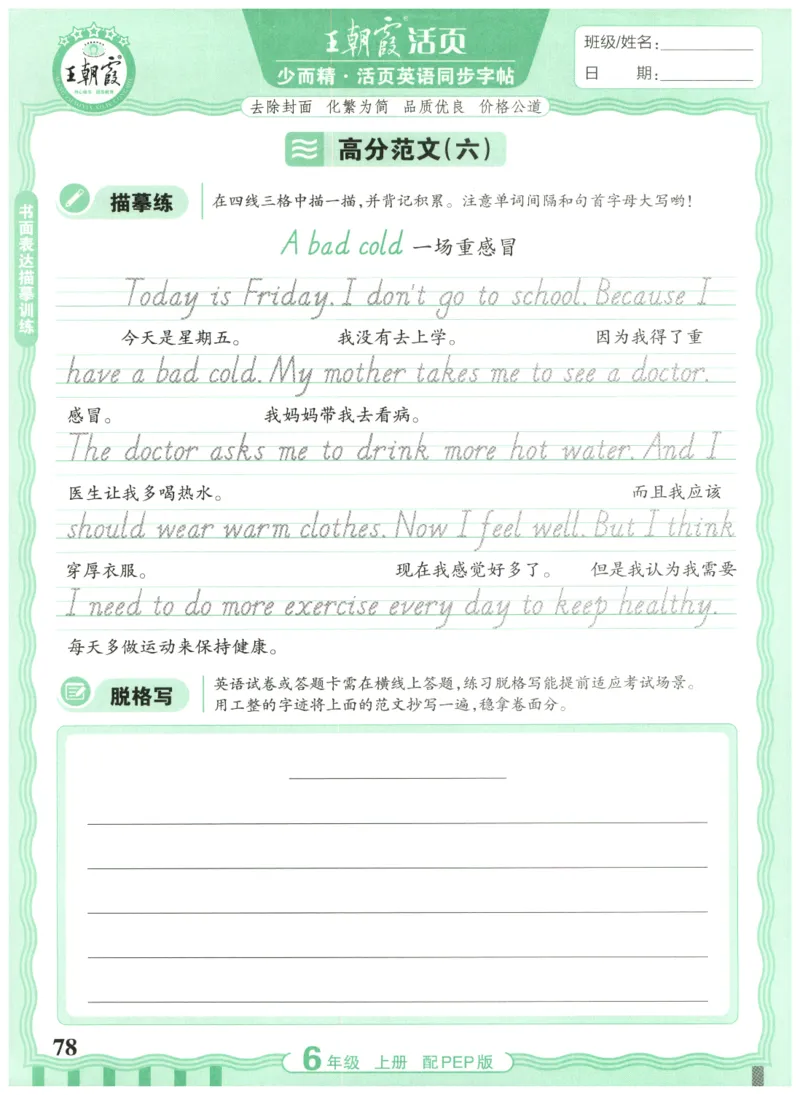 王朝霞
王朝霞活页
少而精·活页英语同步字帖
班级/姓名：
日 期：
去除封面 化繁为简 品质优良 价格公道
高分范文(六)
书面表达描摹训练
描摹练
在四线三格中描一描,并背记积累。注意单词间隔和句首字母大写哟!
A bad cold 一场重感冒
Today is Friday. I don't go to school. Because I
今天是星期五。 我没有去上学。 因为我得了重
have a bad cold. My mother takes me to see a doctor.
感冒。 我妈妈带我去看病。
The doctor asks me to drink more hot water. And I
医生让我多喝热水。 而且我应该
should wear warm clothes. Now I feel well. But I think
穿厚衣服。 现在我感觉好多了。 但是我认为我需要
I need to do more exercise every day to keep healthy.
每天多做运动来保持健康。
脱格写
英语试卷或答题卡需在横线上答题,练习脱格写能提前适应考试场景。
用工整的字迹将上面的范文抄写一遍,稳拿卷面分。
78
6年级 上册 配PEP版